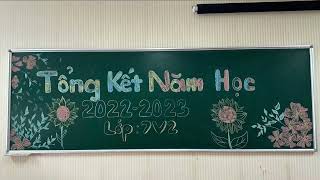 Tổng Kết Năm Học
2022-2023
Lớp: 7V2